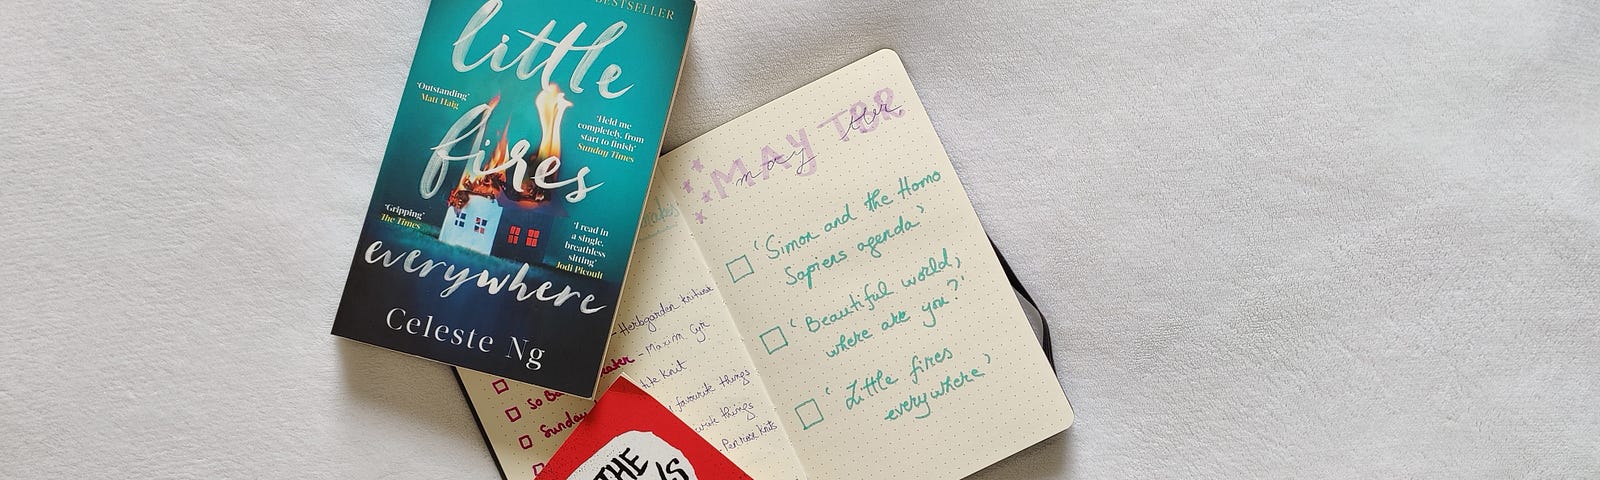 BESTSELLER
little
'Outstanding'
Matt Haig
fires
'Held me
completely, from
start to finish'
Sunday Times
'Gripping'
The Times
'I read in
a single,
breathless
sitting'
Jodi Picoult
everywhere
Celeste Ng
MAY TBR
may tbr
'Simon and the Homo
Sapiens agenda'
'Beautiful world,
where are you?'
'Little fires
everywhere'
- Maxim Cyr
knit
So
favourite things
Sunday
things
THE